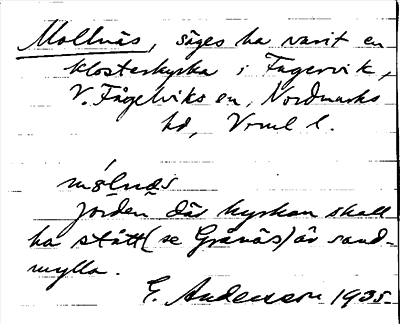 Mollnäs, säges ha varit en
klosterkyrka i Fagervik,
V. Fågelviks sn, Nordmarks
hd, Vrml l.
mólnäs
jorden där kyrkan skall
ha stått (se Gränäs) är sand-
mylla.
E. Andersson 1935.